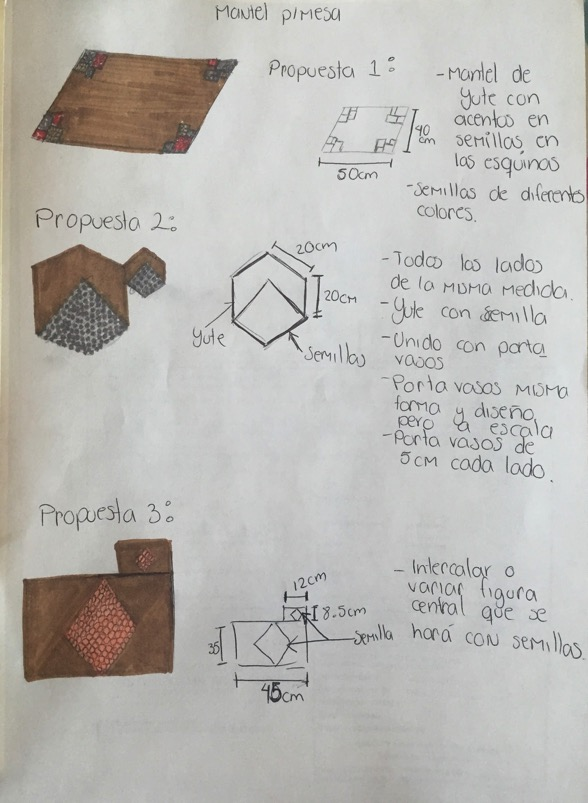 Mantel p/mesa
Propuesta 1:
50cm
40
cm
- Mantel de
yute con
acentos en
semillas en
las esquinas
- Semillas de diferentes
colores.
Propuesta 2:
20cm
20cm
Yute
Semillas
- Todos los lados
de la misma medida.
- Yute con semilla
- Unido con porta
vasos
- Porta vasos misma
forma y diseño
pero a escala
- Porta vasos de
5cm cada lado.
Propuesta 3:
12cm
8.5cm
Semilla
35
45cm
- Intercalar o
variar figura
central que se
hará con semillas.